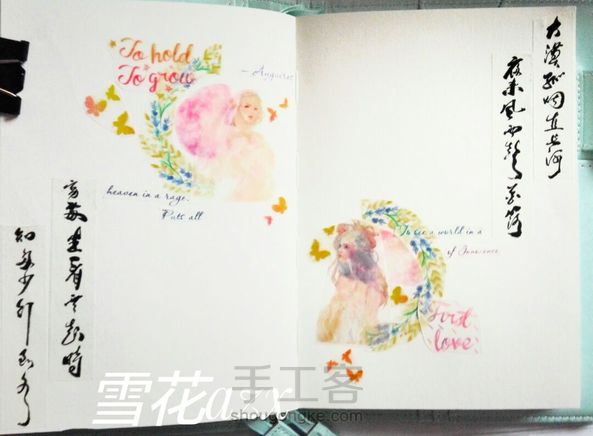 To hold
To grow
— Auguries
heaven in a rage.
Puts all
窮處坐看雲起時
知多少行到水
大漠孤烟直长河
夜来風雨聲花落
To see a world in a
of Innocence
First
love
雪花azx
手工客
shougongke.com